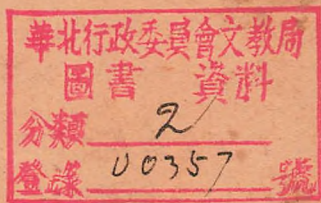 華北行政委員會文教局
圖書 資料
分類 2
登錄 00357 號